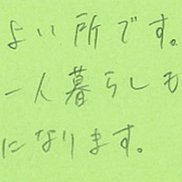 よい所です。
一人暮らしも
になります。